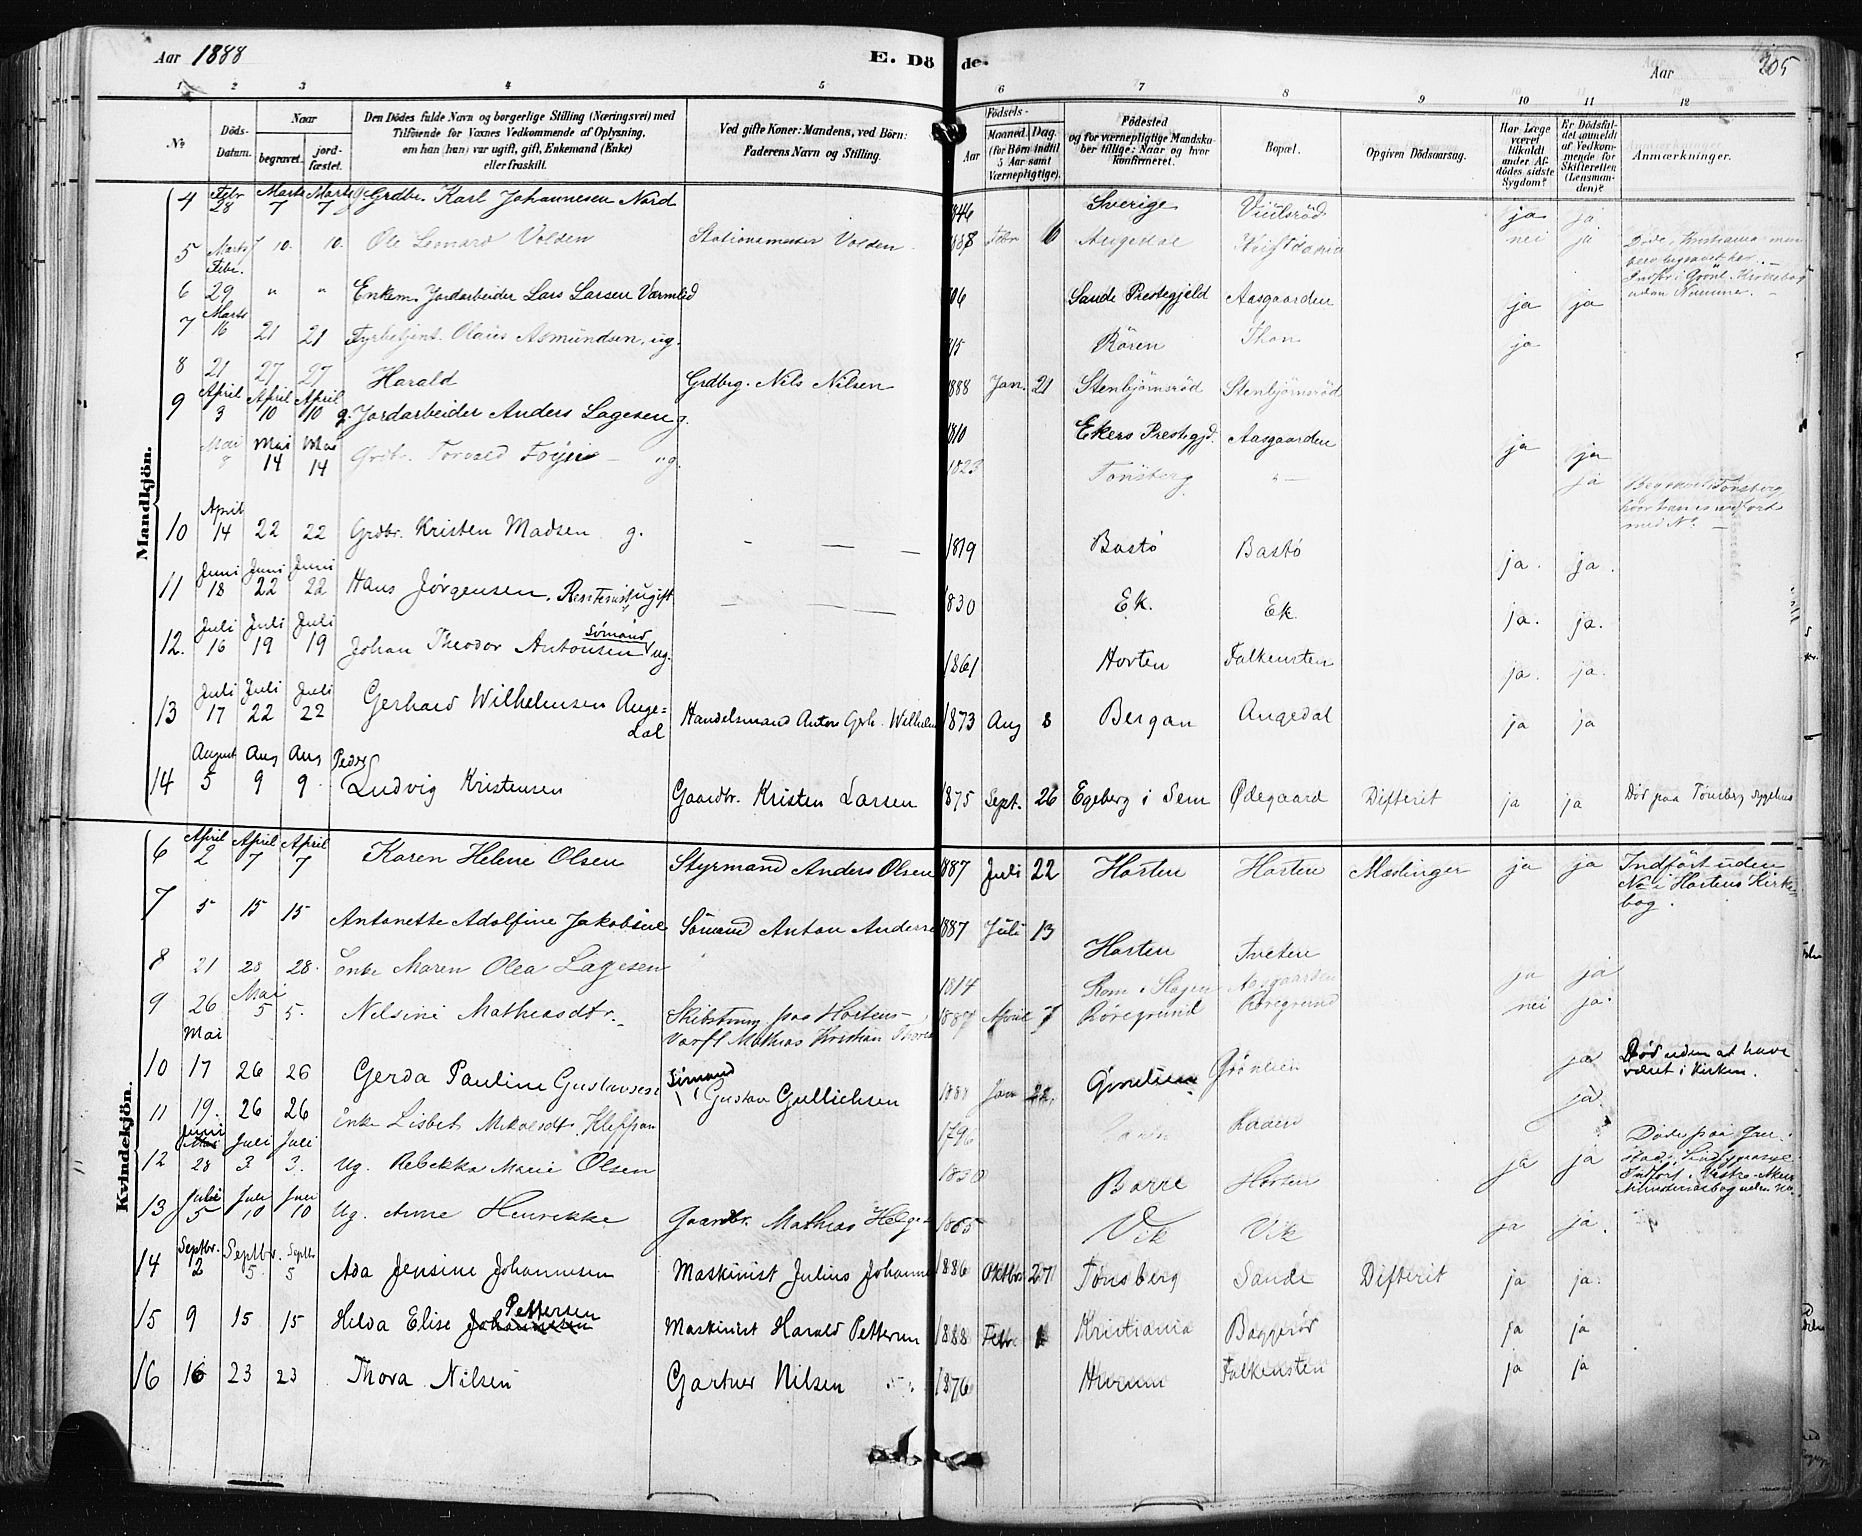 Aar 1888
E. Döde.
Aar
205
1 2 3 4 5 6 7 8 9 10 11 12
No
Döds-Datum.
Naar
begravet.
jord-fæstet.
Den Dödes fulde Navn og borgerlige Stilling (Næringsvei) med
Tilföiende for Voxnes Vedkommende af Oplysning,
om han (hun) var ugift, gift, Enkemand (Enke)
eller fraskilt.
Ved gifte Koner: Mandens, ved Börn:
Faderens Navn og Stilling.
Födsels-
Aar
Maaned. Dag.
(for Börn indtil
5 Aar samt
Værnepligtige).
Födested
og for værnepligtige Mandska-
ber tillige: Naar og hvor
konfirmeret.
Bopæl.
Opgiven Dödsaarsag.
Har Læge
været
tilkaldt
under Af-
dödes sidste
Sygdom?
Er Dödsfal-
det anmeldt
af Vedkom-
mende for
Skifteretten
(Lensman-
den)?
Anmærkninger.
Mandkjön.
4 Febr 28 Marts 7 Marts 7 g. Grdbr. Karl Johannesen Nord 1846 Sverige ja ja
5 Marts 7 10. 10. Ole Leonard Volden Stationsmester Volden 1888 Febr 6 Augedal Kristiania nei ja Döde i Kristiania men blev begravet her. Indför i Grönl. Kirkebog uden Nummer.
6 Febr. 29 " " Enkem. Jordarbeider Lars Larsen Varmlid 06 Sande Prestegjeld Aasgaarden ja ja
7 Marts 16 21 21 Fyrbetjent Olaus Asmundsen, ug. 15 Rören Thon ja
8 21 27 27 Harald Grdbrg. Nils Nilsen 1888 Jan. 21 Stenbjörnsröd Stenbjörnsröd
9 April 3 April 10 April 10 g. Jordarbeider Anders Lagesen g. 1810 Ekers Prestegjd. Aasgaarden ja ja
Mai 8 Mai 14 Mai 14 Grdbr. Torvald Föyn — ug. 1823 Tönsberg " — ja Begravet i Tönsberg, hvor han er indfört med No —
10 April 14 22 22 Grdbr. Kristen Madsen g. — — — 1819 Bastö Bastö ja. ja.
11 Juni 18 Juni 22 Juni 22 Hans Jörgensen, Rentenist ugift — — — 1830 Ek. Ek. ja. ja.
12. Juli 16 Juli 19 Juli 19 Johan Theodor Antonsen Sömand ug. 1861 Horten Falkensten ja. ja.
13 Juli 17 Juli 22 Juli 22 Gerhard Wilhelmsen Auge=dal Handelsmand Anton Gerh. Wilhelm 1873 Aug 8 Bergan Augedal ja ja
14 August 5 Aug 9 Aug 9 Peder Ludvig Kristensen Gaardbr. Kristen Larsen 1875 Sept. 26 Egeberg i Sem Ødegaard Difterit ja ja Död paa Tönsberg Sygehus
Kvindekjön.
6 April 2 April 7 April 7 Karen Helene Olsen Styrmand Anders Olsen 1887 Juli 22 Horten Horten Mæslinger ja ja Indfört uden No i Hortens Kirke-bog.
7 5 15 15 Antonette Adolfine Jakobine Sömand Anton Anders 1887 Juli 13 Horten Tveten
8 21 28 28. Enke Maren Olea Lagesen 1814 Rom i Slagen Aasgaarden ja ja
9 26 Mai 5 5. Nilsine Mathiasdtr. Skibstömm paa Hortens Værft Mathias Kristian 1887 April 7 Röregrund Röregrund nei ja.
10 Mai 17 26 26 Gerda Pauline Gustavsen Sömand Gustav Gullichsen 1888 Jan 22. Grönlien ja Död uden at have været i Kirken.
11 19. 26 26 Enke Lisbet Mikalsdtr. 1796 ja.
12 Juni 28 Juli 3 Juli 3. Ug. Rebekka Marie Olsen 1830 Borre Horten ja ja
13 Juli 5 Juli 10 Juli 10 Ug. Anne Henrikke Gaardbr. Mathias Helge 1865 Vik Vik ja ja.
14 Septbr. 2 Septbr. 5 Septbr 5 Ada Jensine Johannesen Maskinist Julius Johanne 1886 Oktbr 27 Tönsberg Sande Difterit ja ja.
15 9 15 15 Hilda Elise Johannesen Pettersen Maskinist Harald Pettersen 1888 Febr 1 Kristiania Baggeröd ja ja
16 16 23 23 Thora Nilsen Gartner Nilsen 1876 Hurum Falkensten ja ja